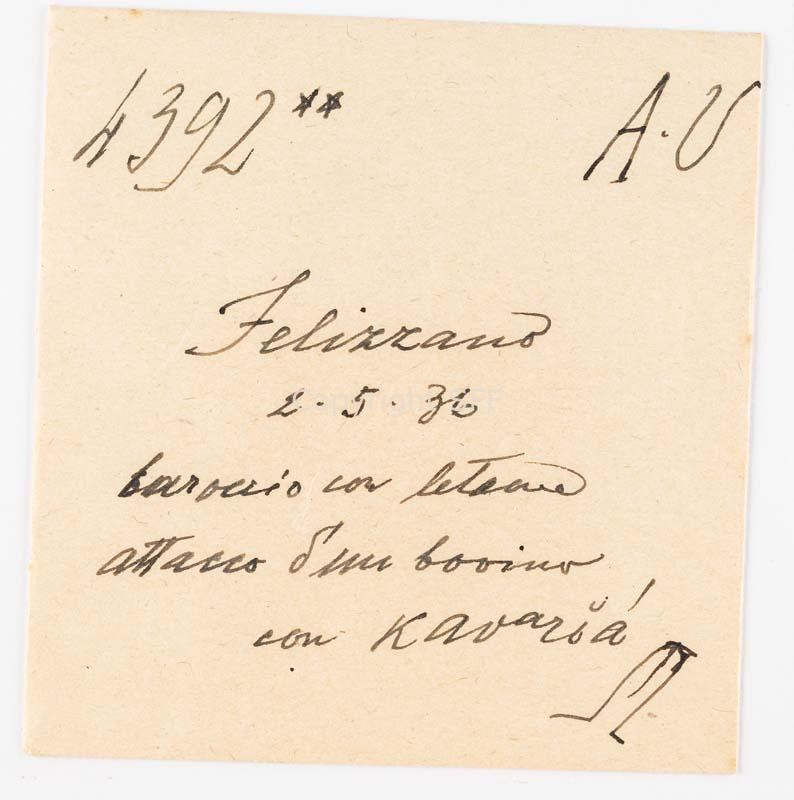 4392** A.V
Felizzano
2.5.36
baroccio con letame
attacco d'un bovino
con Kavarŭá